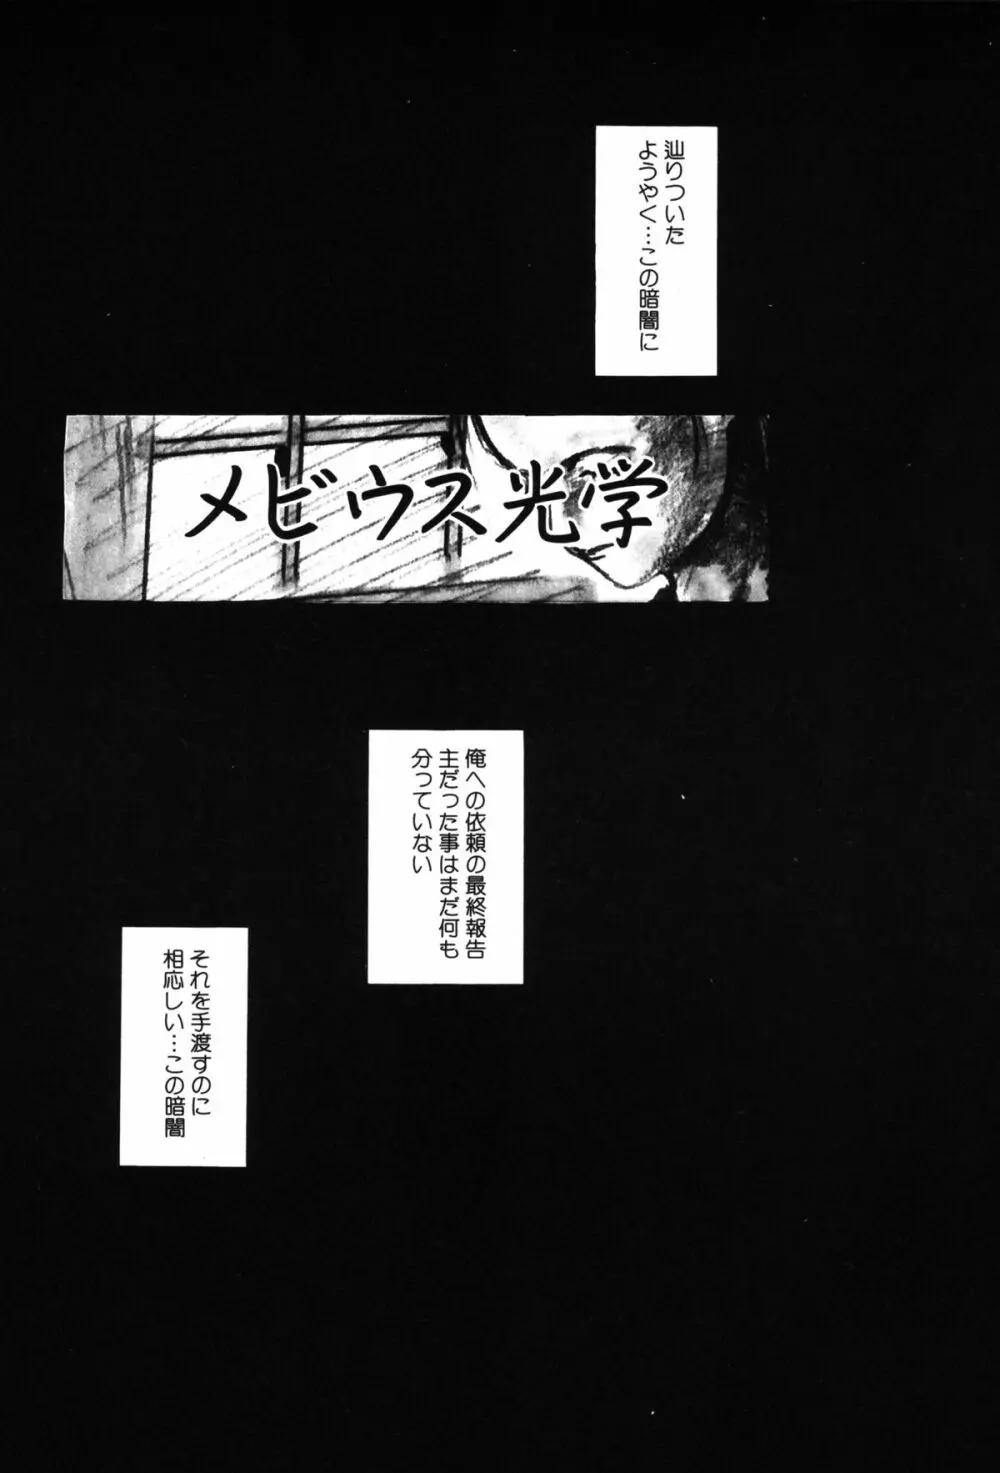 辿りついた
ようやく…この暗闇に
メビウス光学
俺への依頼の最終報告
主だった事はまだ何も
分っていない
それを手渡すのに
相応しい…この暗闇